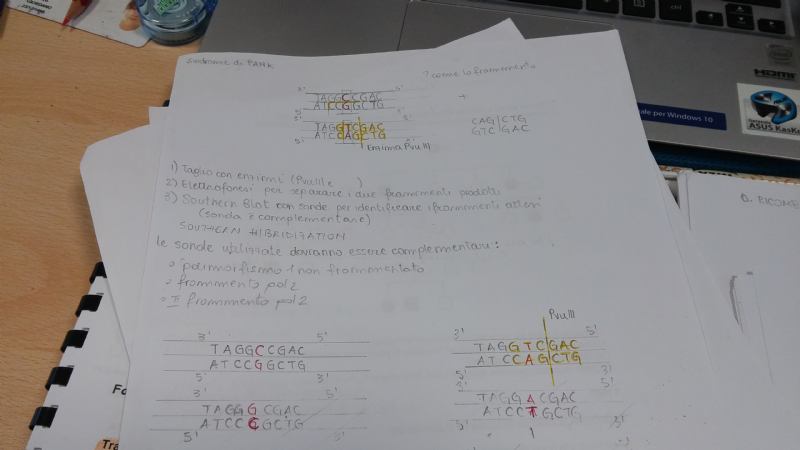 Sindrome di PANK
? come lo frammento
3' 5'
TAGGCCGAC
ATCCGGCTG
5' 3'
3' 5'
TAGGTCGAC
ATCCAGCTG
5'
Enzima PvuIII
+
CAG|CTG
GTC|GAC
1) Taglio con enzimi (PvuIII e )
2) Elettroforesi per separare i due frammenti prodotti
3) Southern Blot con sonde per identificare i frammenti attesi
(sonda è complementare)
SOUTHERN HIBRIDIZATION
le sonde utilizzate dovranno essere complementari:
polimorfismo 1 non frammentato
frammento pol 2
II frammento pol 2
3' 5'
TAGGCCGAC
ATCCGGCTG
5' 3'
3' 5'
TAGGGCGAC
ATCCCGCTG
5' 3'
PvuIII
3' 5'
TAGGTCGAC
ATCCAGCTG
5' 3'
3' 5'
TAGGACGAC
ATCCTGCTG
5' 3'
HDMI
ale per Windows 10
Garanzia
ASUS KasKo
D. RICOMB
ctrl
Fo
Tra